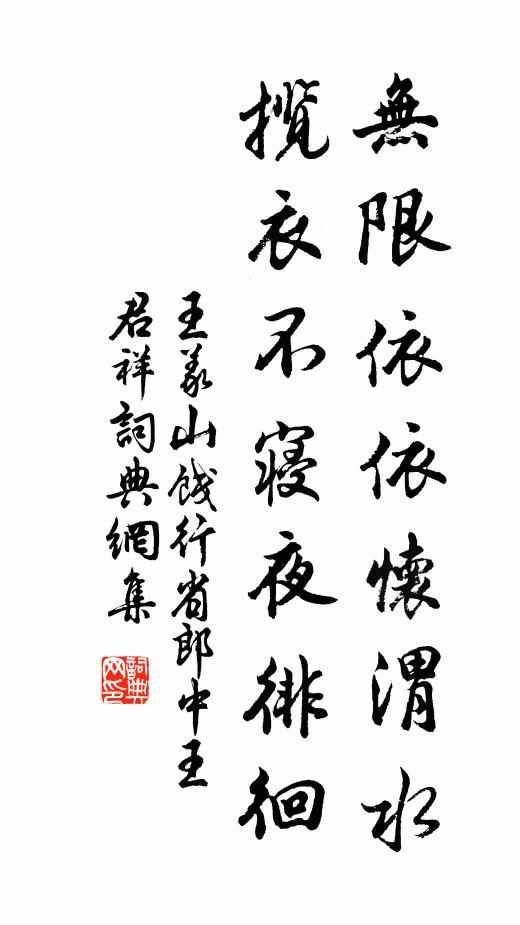 無限依依懷渭水
攬衣不寢夜徘徊
王義山餞行省郎中王
君祥詞典網集
詞典網印